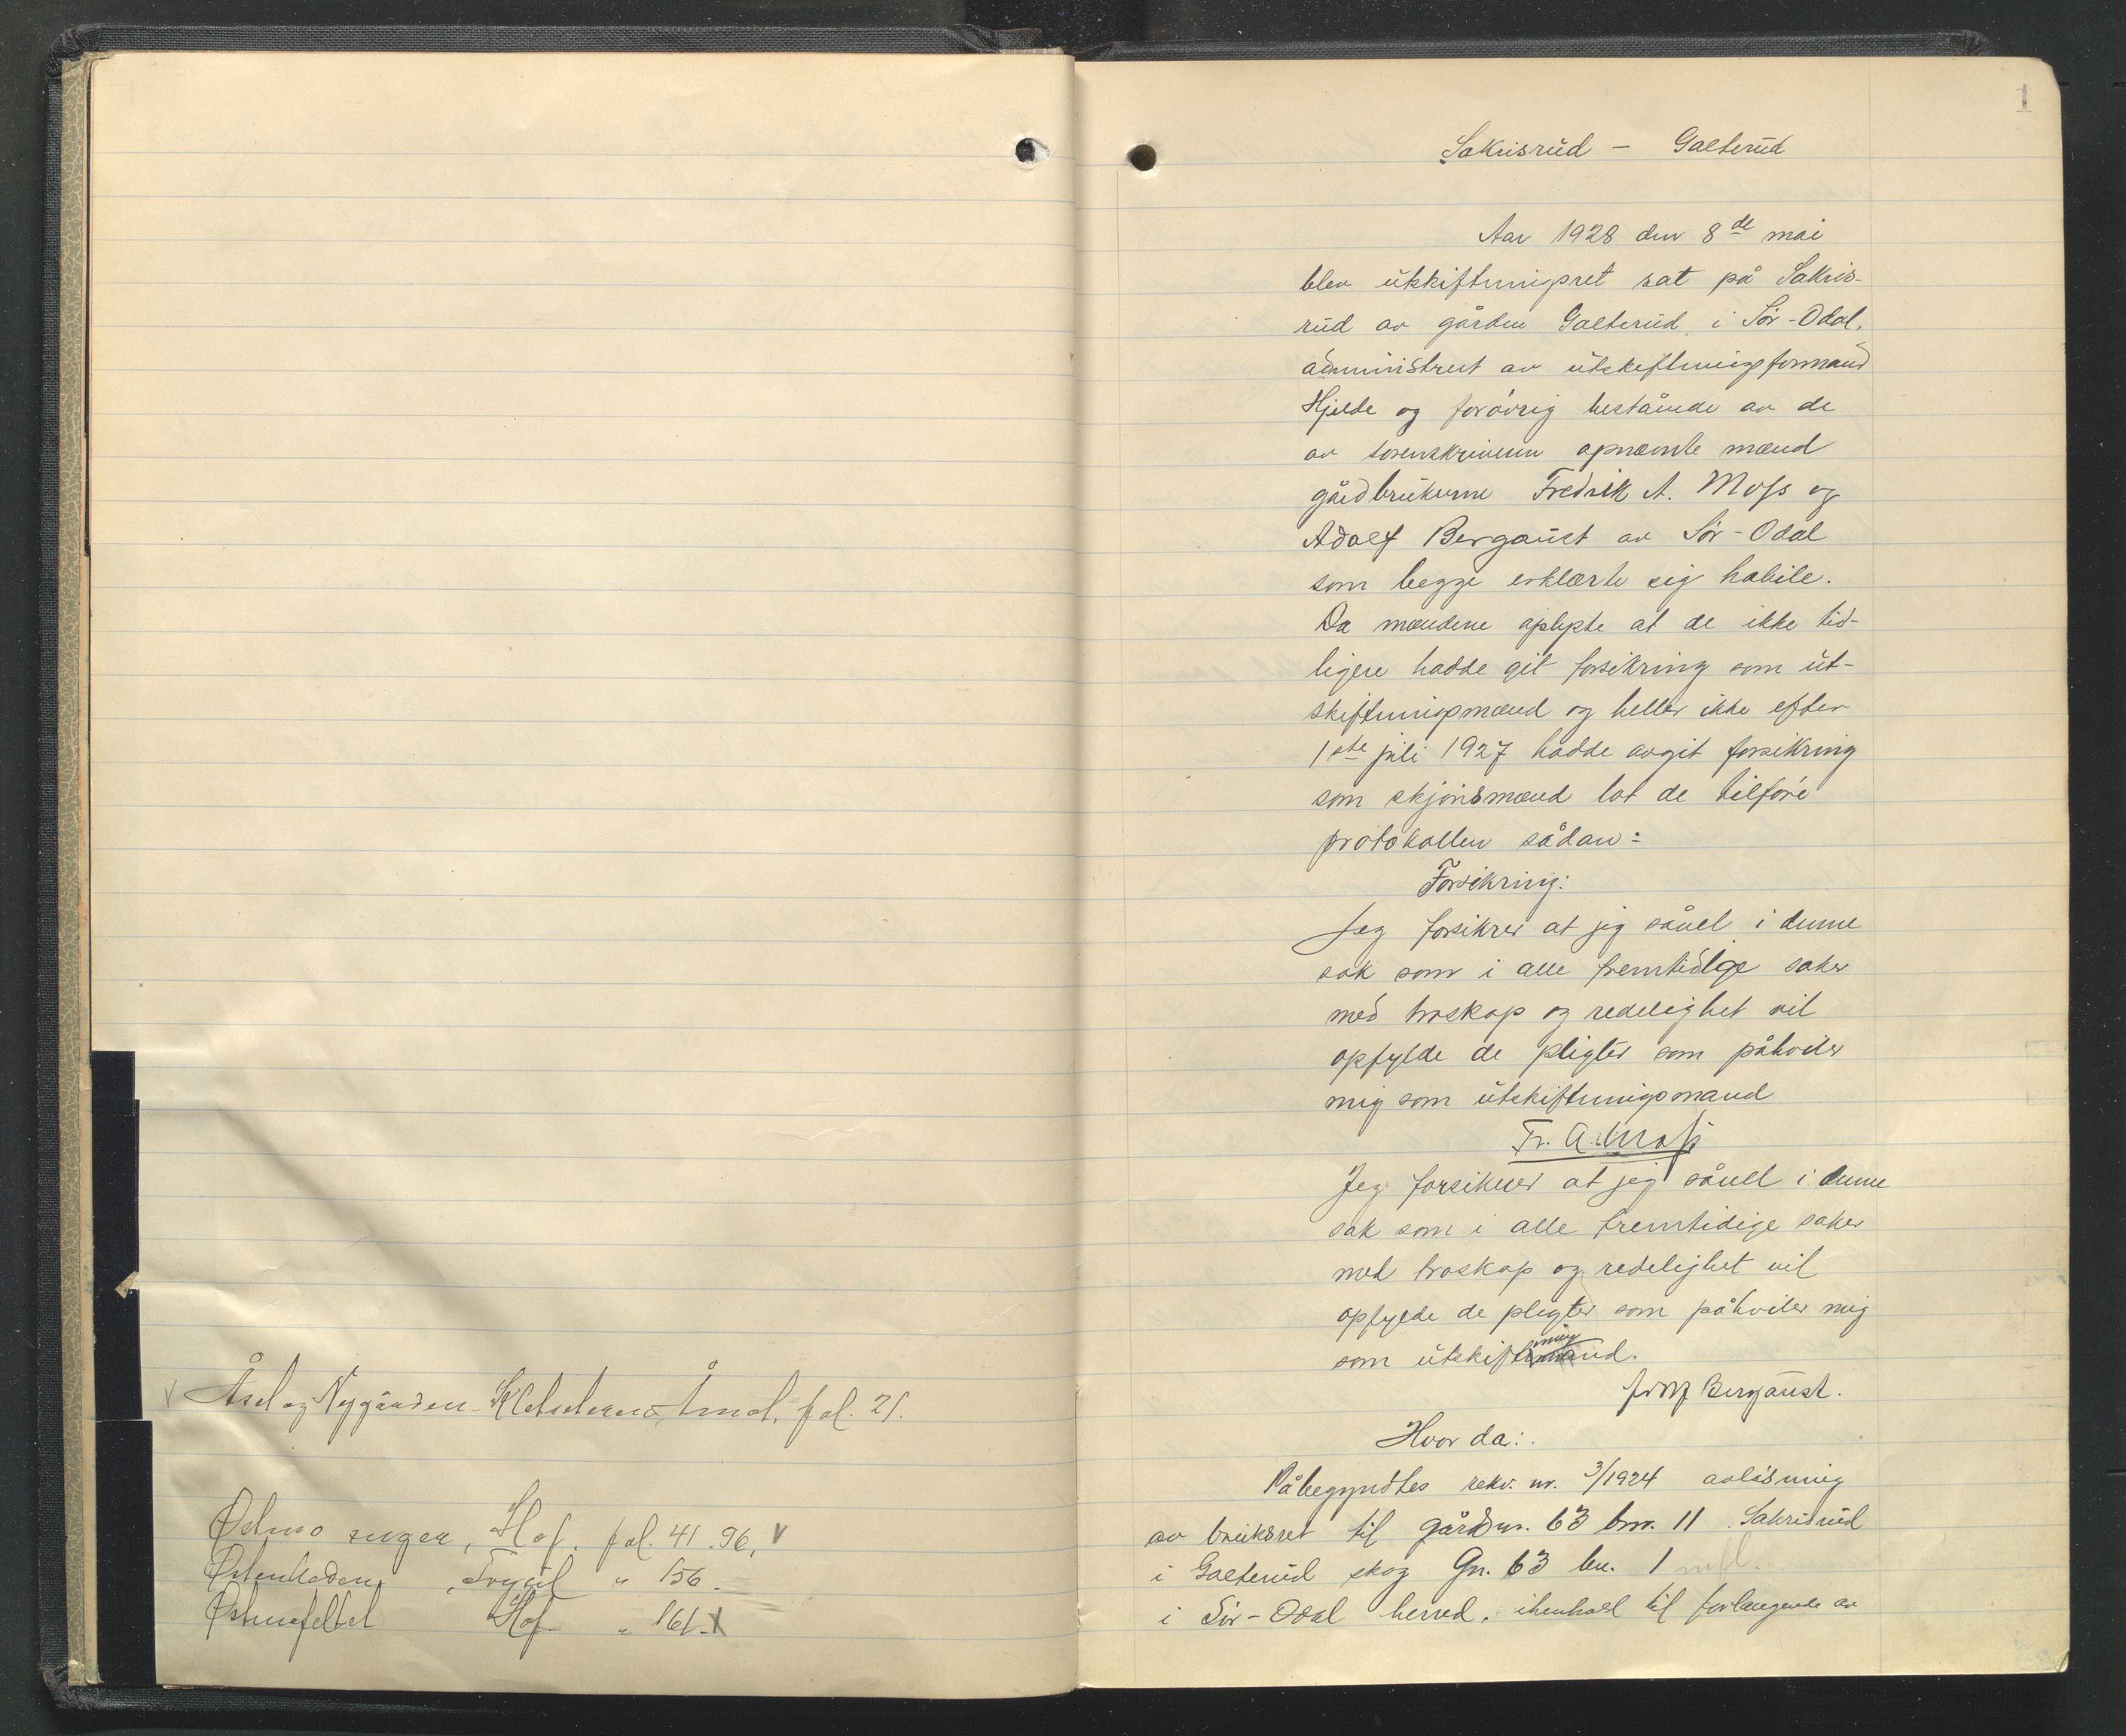 Åsel og Nygården - Åmot, fol. 21.
Østmo Hof. fol. 41. 96. v
Trysil " 156.
Østmofeltet Hof " 161.
1
Sakrisrud - Galterud
Aar 1928 den 8de mai
blev utskiftningsret sat på Sakris-
rud av gården Galterud i Sør-Odal,
administrert av utskiftningsformand
Hjelde og forøvrig bestående av de
av sorenskriveren opnævnte mænd
gårdbrukerne Fredrik A. Moss og
Adolf Bergaust av Sør-Odal
som begge erklærte sig habile.
Da mændene oplyste at de ikke tid-
ligere hadde git forsikring som ut-
skiftningsmænd og heller ikke efter
1ste juli 1927 hadde avgit forsikring
som skjønsmænd lot de tilføre
protokollen sådan:
Forsikring:
Jeg forsikrer at jeg såvel i denne
sak som i alle fremtidige saker
med troskap og redelighet vil
opfylde de pligter som påhviler
mig som utskiftningsmand
Fr. A. Moss
Jeg forsikrer at jeg såvel i denne
sak som i alle fremtidige saker
med troskap og redelighet vil
opfylde de pligter som påhviler mig
som utskiftningmand.
Bergaust.
Hvor da:
Påbegyndtes rekv. nr. 3/1924 avløsning
av bruksret til gårdsnr. 63 bnr. 11 Sakrisrud
i Galterud skog Gn. 63 bn. 1
i Sør-Odal herred, i henhold til forlangende av